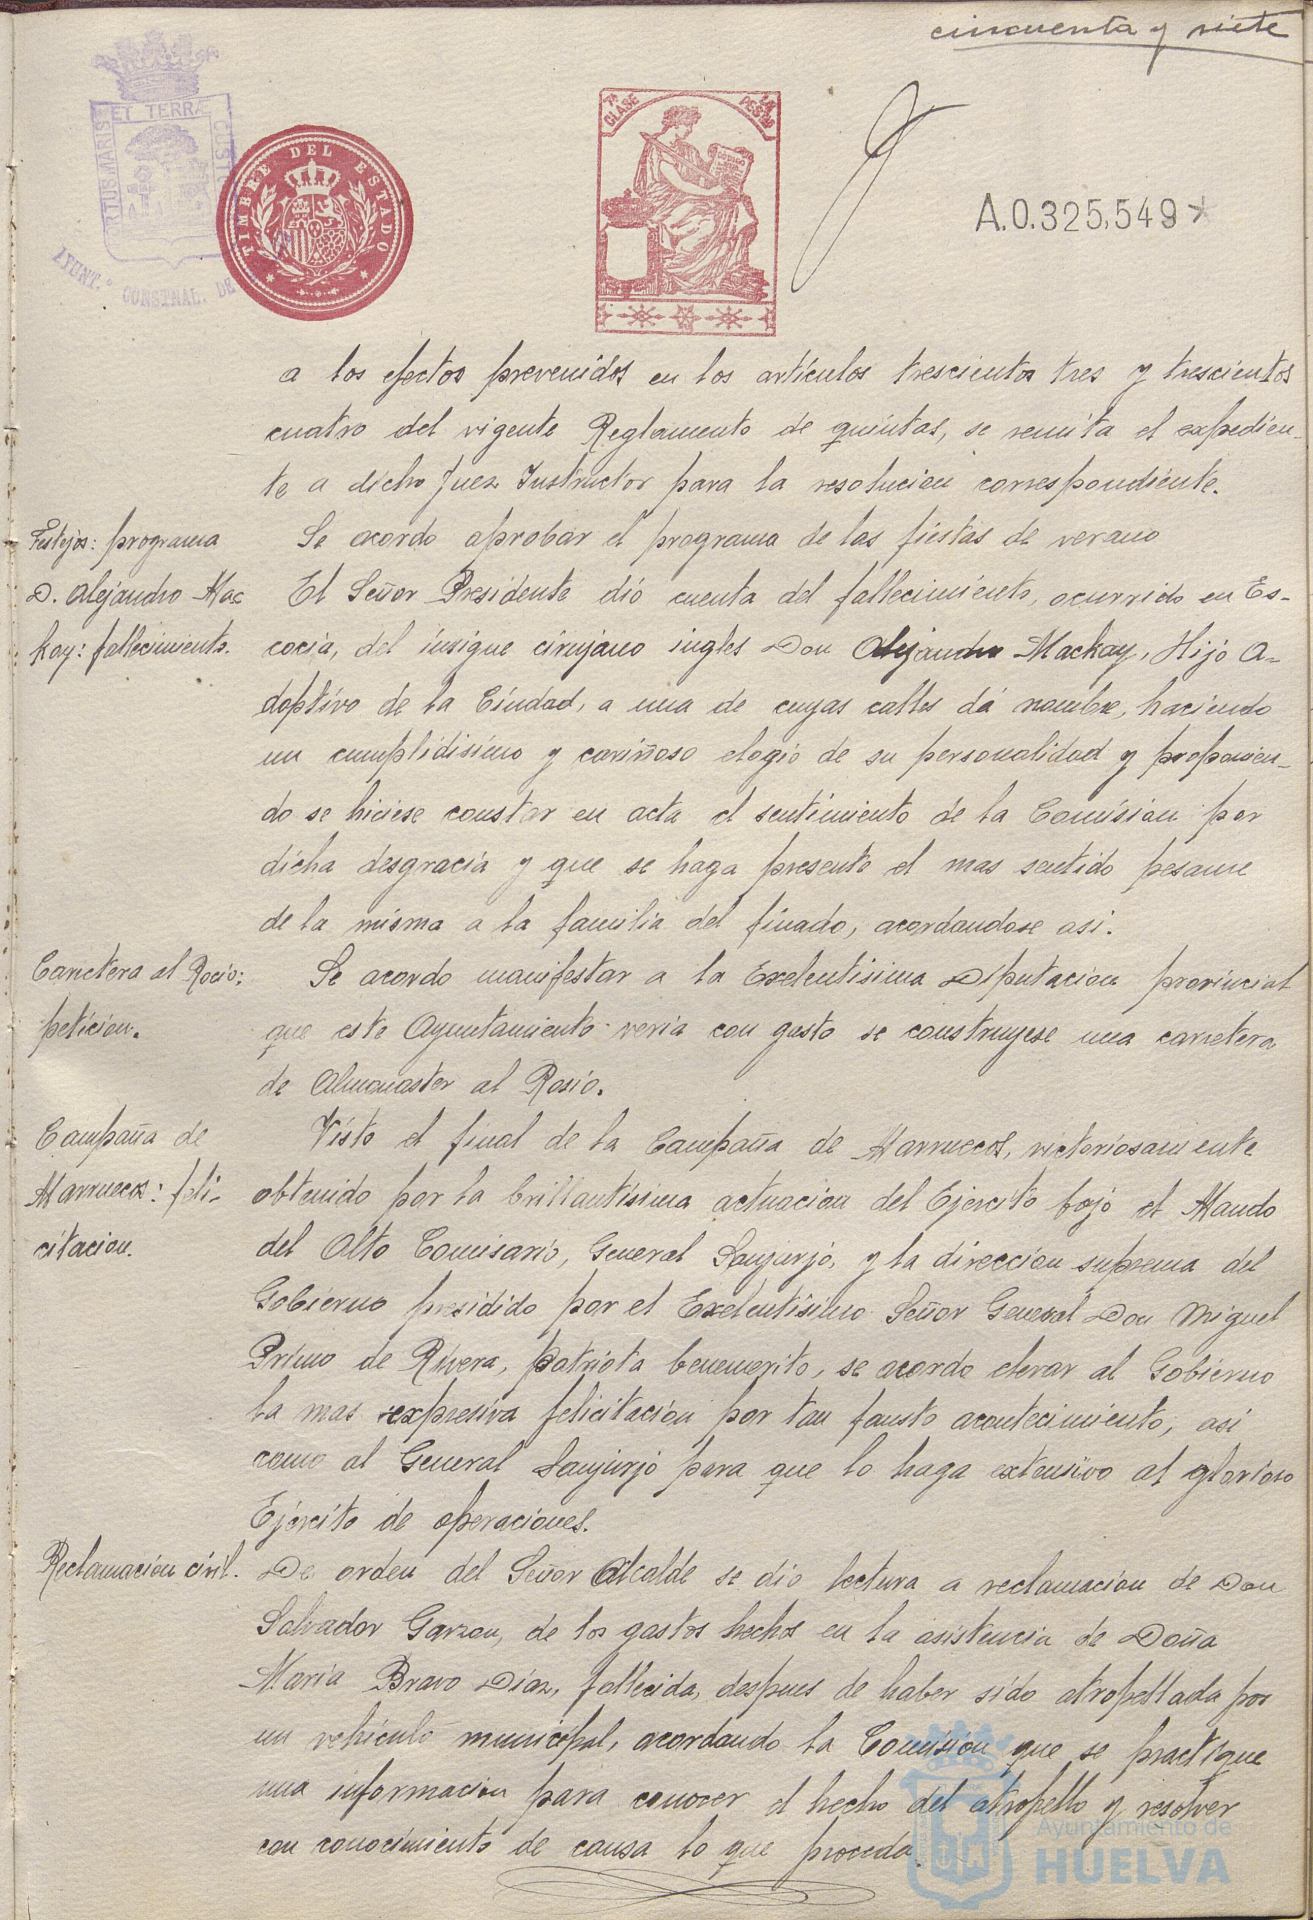 cincuenta y siete
PORTUS MARIS ET TERRÆ CUSTODIA
AYUNT.º CONSTNAL. DE
TIMBRE DEL ESTADO
7ª CLASE
PESETAS
CODIGO
A.0.325,549*
a los efectos prevenidos en los artículos trescientos tres y trescientos
cuatro del vigente Reglamento de quintas, se remita el expedien-
te a dicho Juez Instructor para la resolucion correspondiente.
Festejos: programa
Se acordo aprobar el programa de las fiestas de verano
D. Alejandro Mac
kay: fallecimiento.
El Señor Presidente dió cuenta del fallecimiento, ocurrido en Es-
cocia, del insigne cirujano ingles Don Alejandro Mackay, Hijo A-
doptivo de la Ciudad, a una de cuyas calles dá nombre, haciendo
un cumplidisimo y cariñoso elogio de su personalidad y proponien-
do se hiciese constar en acta el sentimiento de la Comision por
dicha desgracia y que se haga presente el mas sentido pesame
de la misma a la familia del finado, acordandose asi.
Carretera al Rocio:
peticion.
Se acordo manifestar a la Exelentisima Diputacion provincial
que este Ayuntamiento veria con gusto se construyese una carretera
de Almonaster al Rosio.
Campaña de
Marruecos: feli-
citacion.
Visto el final de la Campaña de Marruecos, victoriosamente
obtenido por la brillantisima actuacion del Ejercito bajo el Mando
del Alto Comisario, General Sanjurjo, y la direccion suprema del
Gobierno presidido por el Exelentisimo Señor General Don Miguel
Primo de Rivera, patriota benemerito, se acordo elevar al Gobierno
la mas expresiva felicitacion por tan fausto acontecimiento, asi
como al General Sanjurjo para que lo haga extensivo al glorioso
Ejercito de operaciones.
Reclamacion civil.
De orden del Señor Alcalde se dio lectura a reclamacion de Don
Salvador Garzon, de los gastos hechos en la asistencia de Doña
Maria Bravo Diaz, fallecida, despues de haber sido atropellada por
un vehiculo municipal, acordando la Comision que se practique
una informacion para conocer el hecho del atropello y resolver
con conocimiento de causa lo que proceda.
Ayuntamiento de
HUELVA